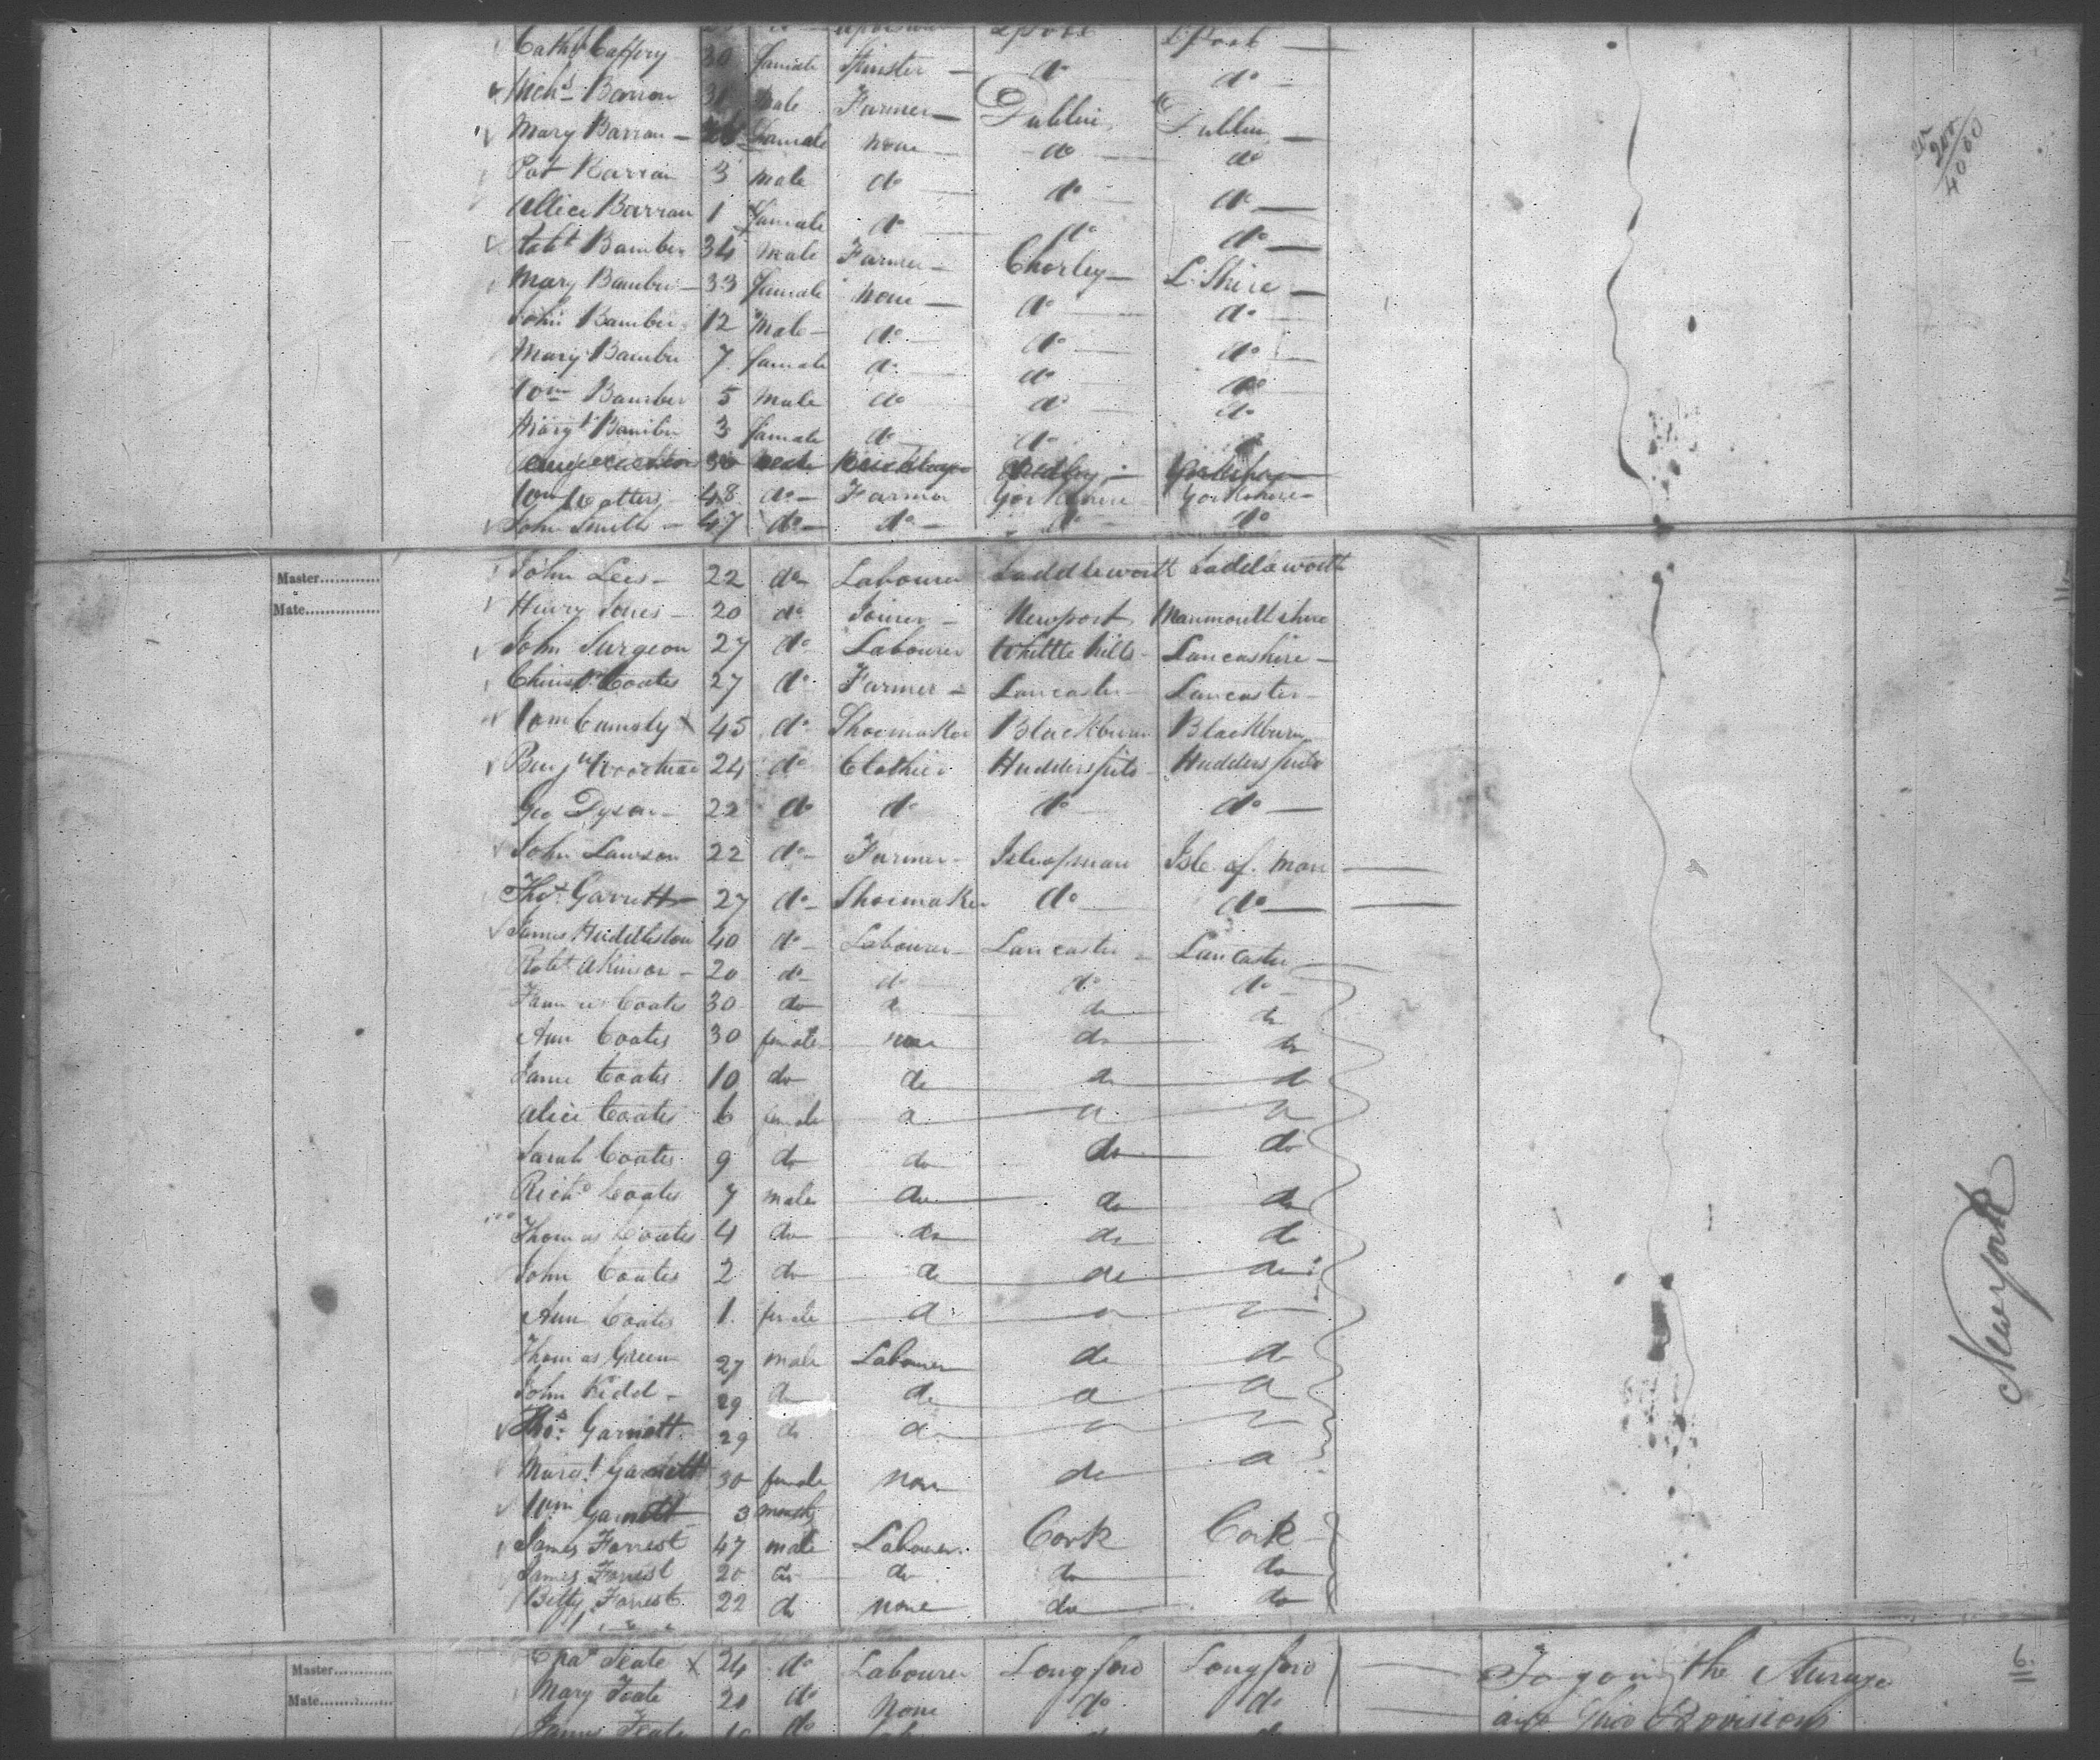 Cath Caffery 30 female Spinster — do do —
Mich^d Barron 31 male Farmer — Dublin Dublin —
Mary Barran — female none — do — do
Pat Barran 3 male do do do —
Allice Barran 1 female do do do —
Rob^t Bamber 34 male Farmer — Chorley — L. Shire —
Mary Bamber — 33 female none — do do —
John Bamber 12 Male — do — do do —
Mary Bamber 7 female do do do
W^m Bamber 5 male do do do
Marg^t Bamber 3 female do do
Bricklayer
W^m 48 do — Farmer Yorkshire — Yorkshire —
John Smith — 47 do — do — do — do
Master............ John Lees — 22 do Labourer Saddleworth Saddleworth
Mate............... Henry Jones — 20 do Joiner — Newport Manmouthshire
John Surgeon 27 do Labourer Whittle hills — Lancashire —
Christ^r Coates 27 do Farmer — Lancaster — Lancaster —
W^m X 45 do Shoemaker Blackburn Blackburn
Benj 24 do Clothier Huddersfield — Huddersfield
Geo Dyson — 22 do do do do —
John Lawson 22 do — Farmer — Isle of man Isle of man —
Tho^s Garrett — 27 do — Shoemaker do — do —
James Huddleston 40 do — Labourer — Lancaster — Lancaster
Rob^t Akinson — 20 do do do do
Coates 30 do do do do
Ann Coates 30 female none do do
Jane Coates 10 do do do do
Alice Coates 6 female do do do
Sarah Coates 9 do do do do
Rich^d Coates 7 male do do do
Thomas Coates 4 do do do do
John Coates 2 do do do do
Ann Coates 1 female do do do
Thomas Green 27 male Labourer do do
John Kidd — 29 do do do do
Tho^s Garnett 29 do do do do
Marg^t Garnett 30 female none do do
W^m Garnett 3 months
James Forrest 47 male Labourer Cork Cork
James Forrest 20 do do do do
Betty Forrest 22 do none do do
Master............ Teate X 24 do Labourer Longford Longford
Mate............... Mary Teate 20 do None do do
James Teate do
20
200
4000
New York
6
To the Steerage
and Provisions